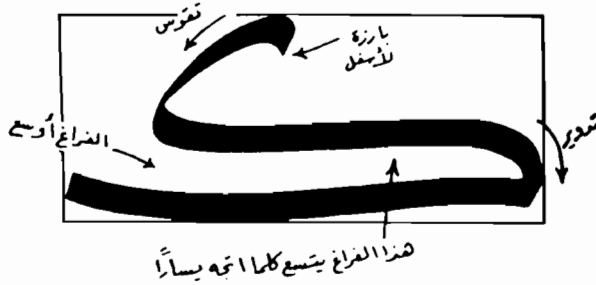 تقوس
بارزة
لأسفل
تدوير
الفراغ أوسع
هذا الفراغ يتسع كلما اتجه يسارًا